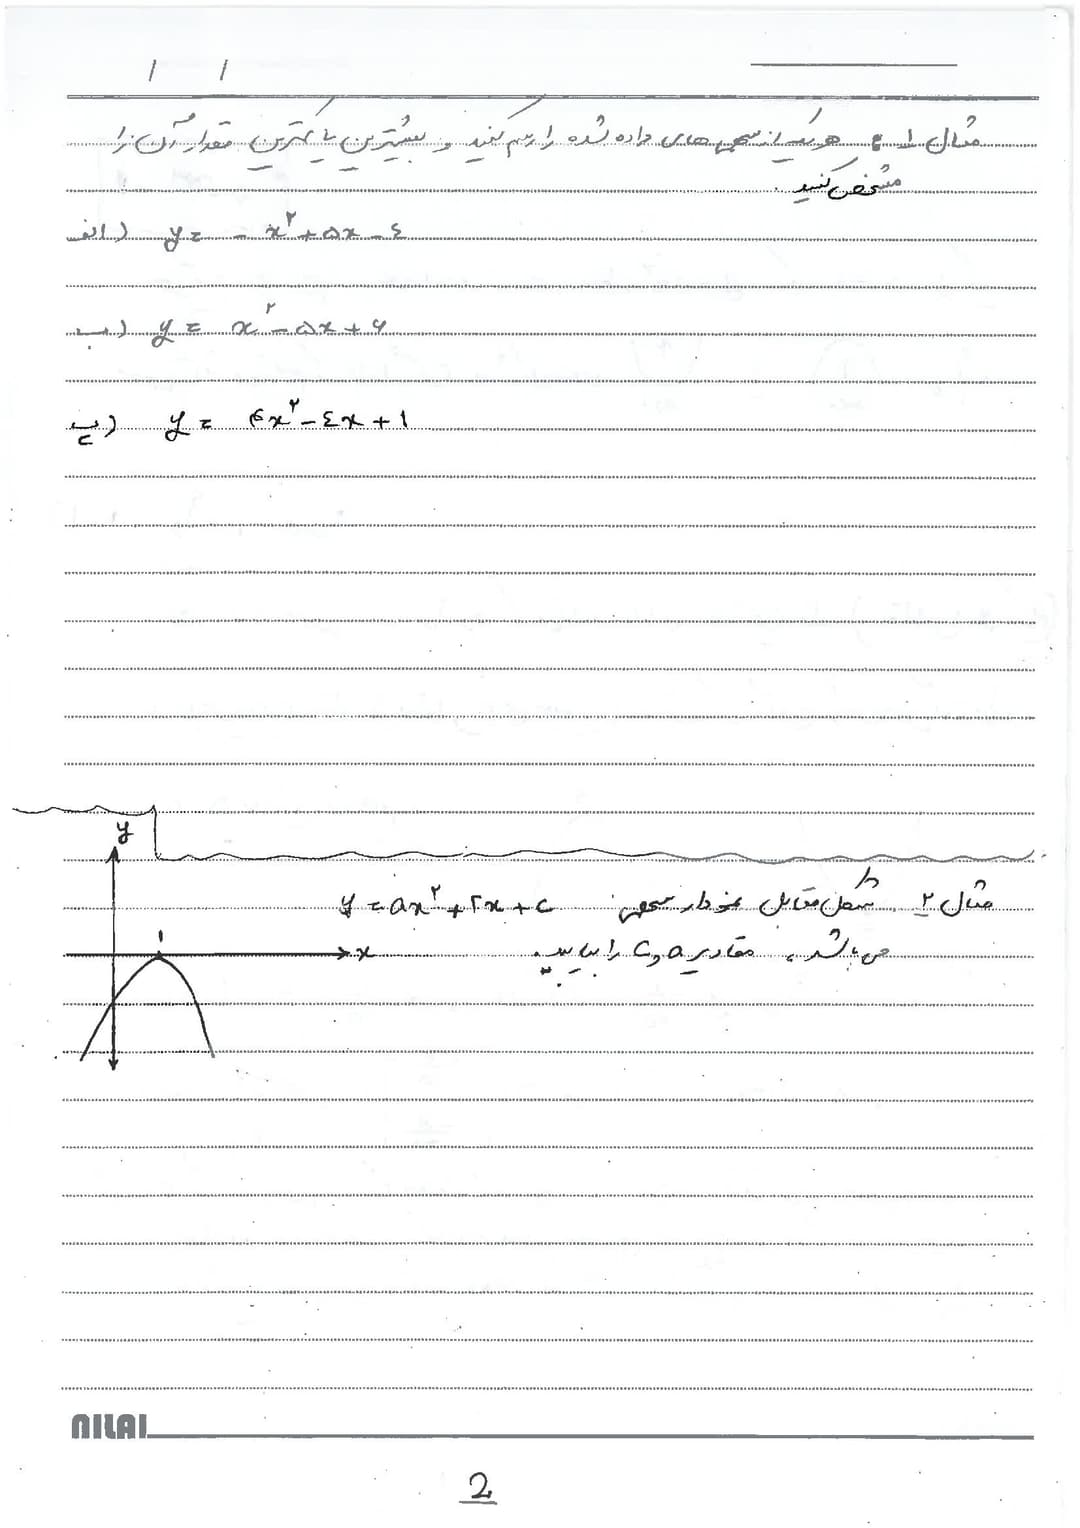 / /
مثال ۱ : هر یک از سهمی های داده شده را رسم کنید و بیشترین یا کمترین مقدار آن را
مشخص کنید.
الف) y = - x² + ۵x - ٤
ب) y = x² - ۵x + ۶
پ) y = ۴x² - ٤x + ۱
y
مثال ۲ شکل مقابل نمودار سهمی y = ax² + ۲x + c
۱
x
می باشد، مقادیر a و c را بیابید.
NILAI
2